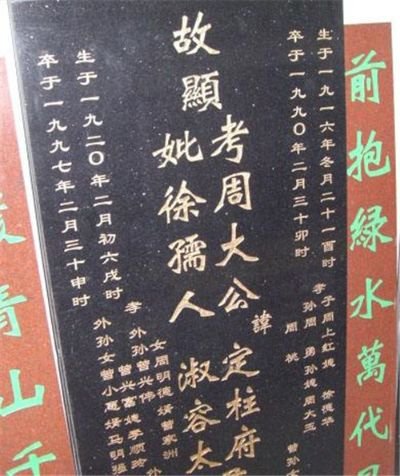 前抱綠水萬代
生于一九一六年冬月二十一酉时
卒于一九九〇年二月三十卯时
孝子周上红媳徐德华
孙周勇孙媳周大玉
周桃
故顯考周大公諱定柱府
妣徐孺人淑容太
女周明德婿曾家洲
孝外孙曾兴伟
曾兴富媳李顺琼
外孙女曾小惠婿马明强
生于一九二〇年二月初六戌时
卒于一九九七年二月三十申时
青山千